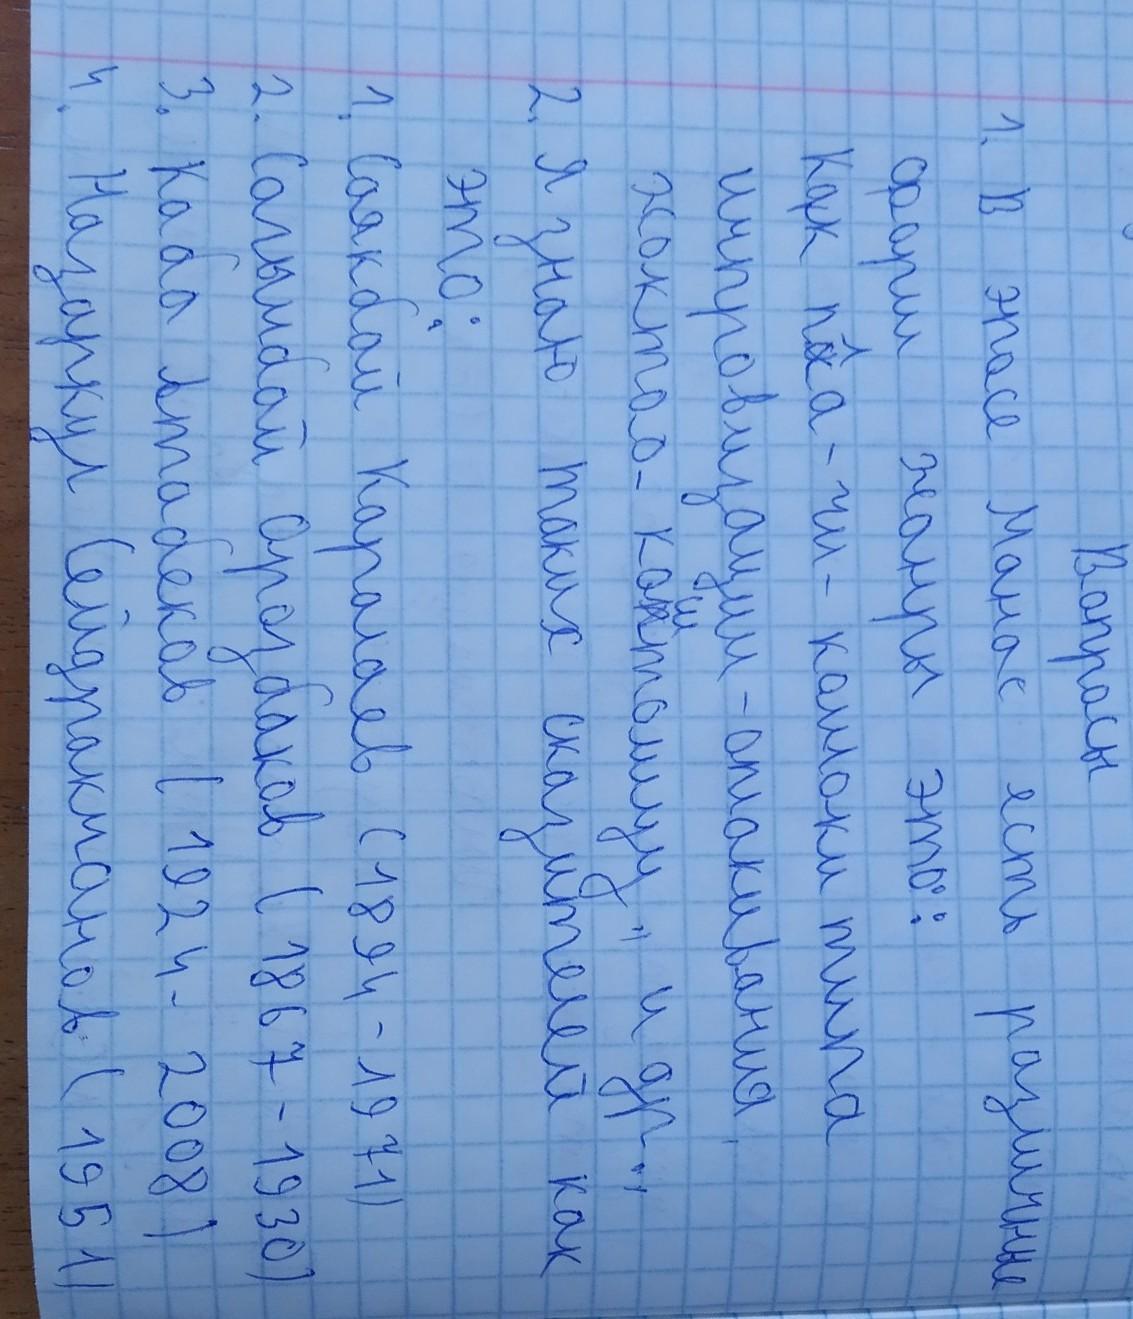 Вопросы
1. В эпосе Манас есть различные
форм жанры это:
Как па-чи- комоки типа
импровизации - оплакивания
жоктоо- кошомдуу" и др.,
2. Я знаю таких сказителей как
это:
1. Саякбай Каралаев (1894-1971)
2. Сагымбай Орозбаков (1867-1930)
3. Каба Атабеков (1924- 2008)
4. Назаркул Сейдракманов (1951)